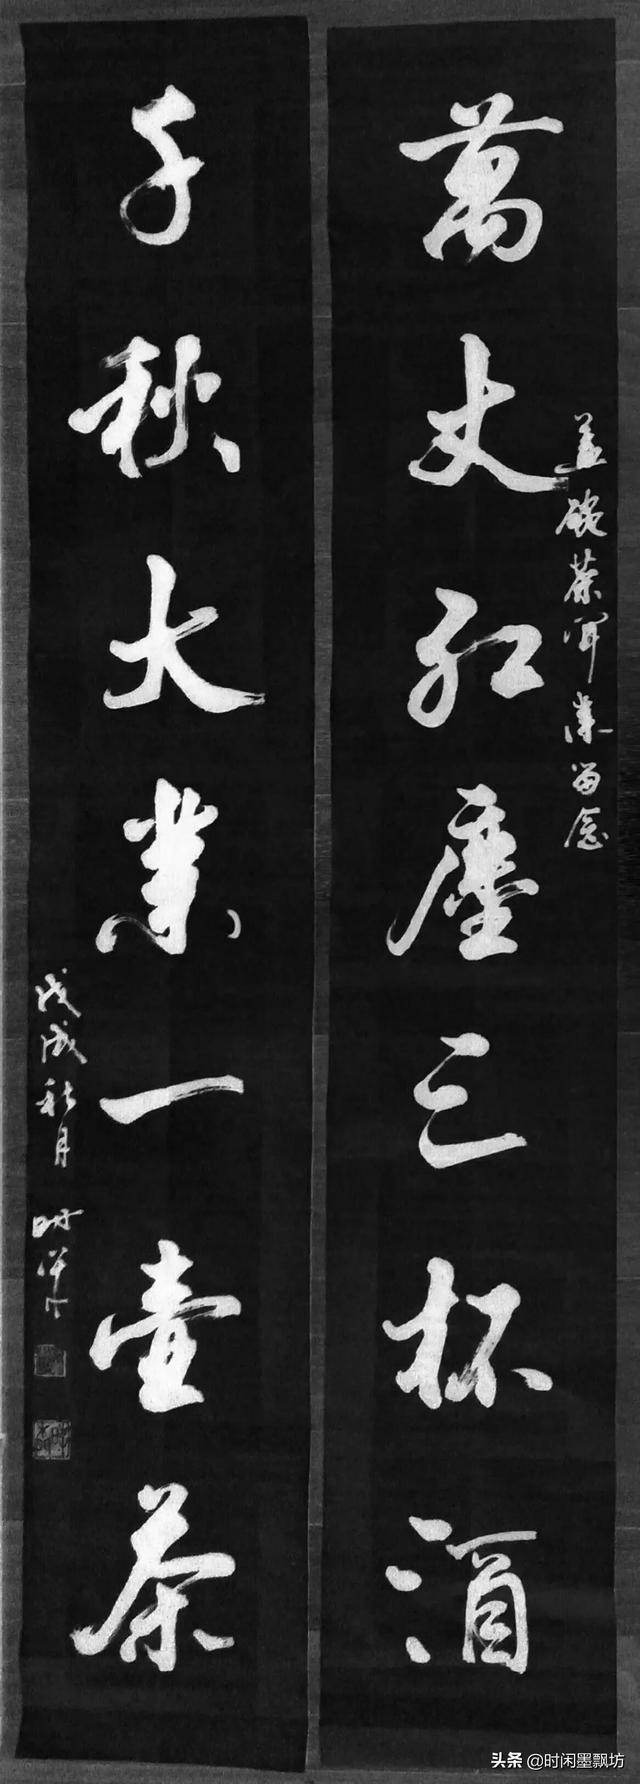 萬丈红塵三杯酒
千秋大業一壺茶
戊戌秋月
头条 @时闲墨飘坊